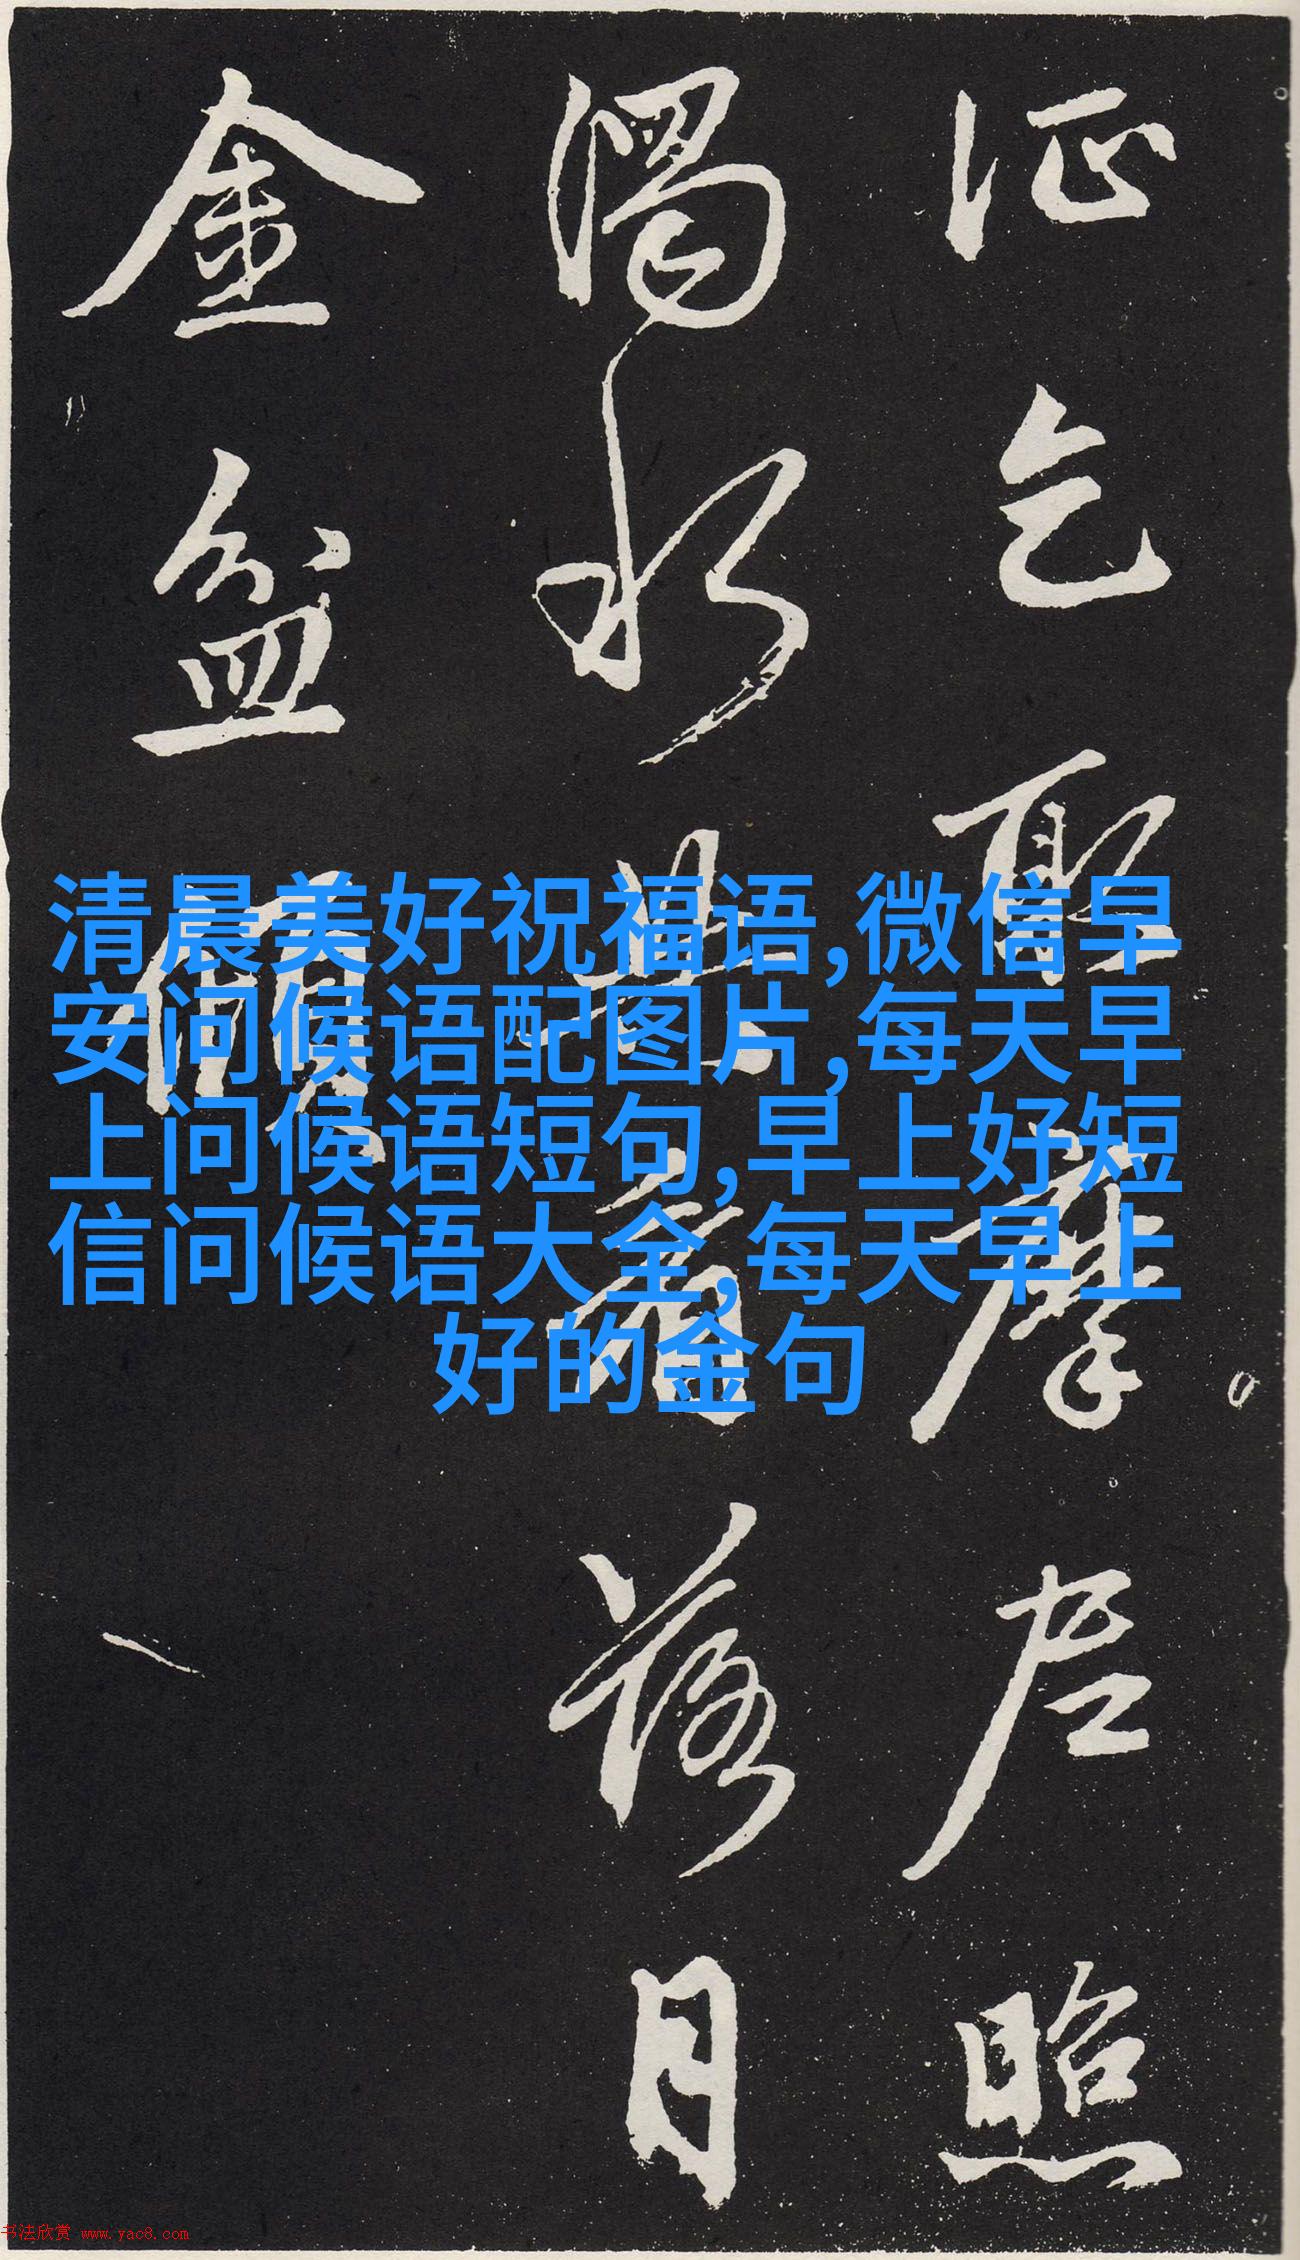 清晨美好祝福语,微信早
安问候语配图片,每天早
上问候语短句,早上好短
信问候语大全,每天早上
好的金句
乞聖摩左照
濁水
落月
金盆
书法欣赏 www.yac8.com